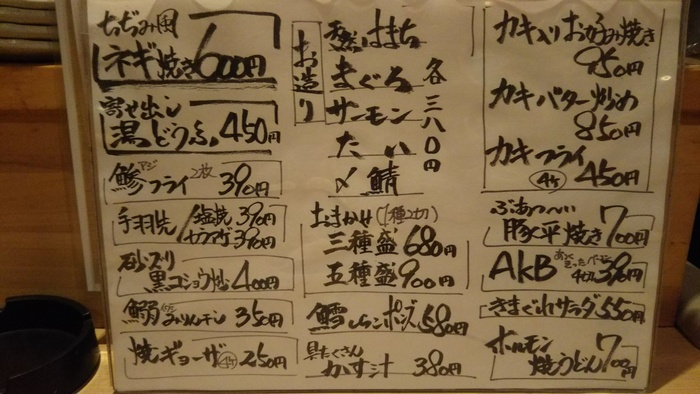 ちぢみ風
ネギ焼き600円
寄せ出し
湯どうふ。450円
鯵フライ 2枚 390円
アジ
手羽先 塩焼 390円
カラアゲ 390円
砂ズリ
黒コショウ炒 400円
みりん干し 350円
焼ギョーザ 4ケ 250円
お造り
天然はまち
まぐろ
サーモン
たい
〆鯖
各三八〇円
おまかせ(1種2切)
三種盛 680円
五種盛 900円
鱈しらこポン酢 580円
具たくさん
かす汁 380円
カキ入りお好み焼き
950円
カキバター炒め
850円
カキフライ
4ケ 450円
ぶあつ〜い
豚平焼き 700円
AKB
4切 390円
きまぐれサラダ 550円
ホルモン
焼うどん 700円